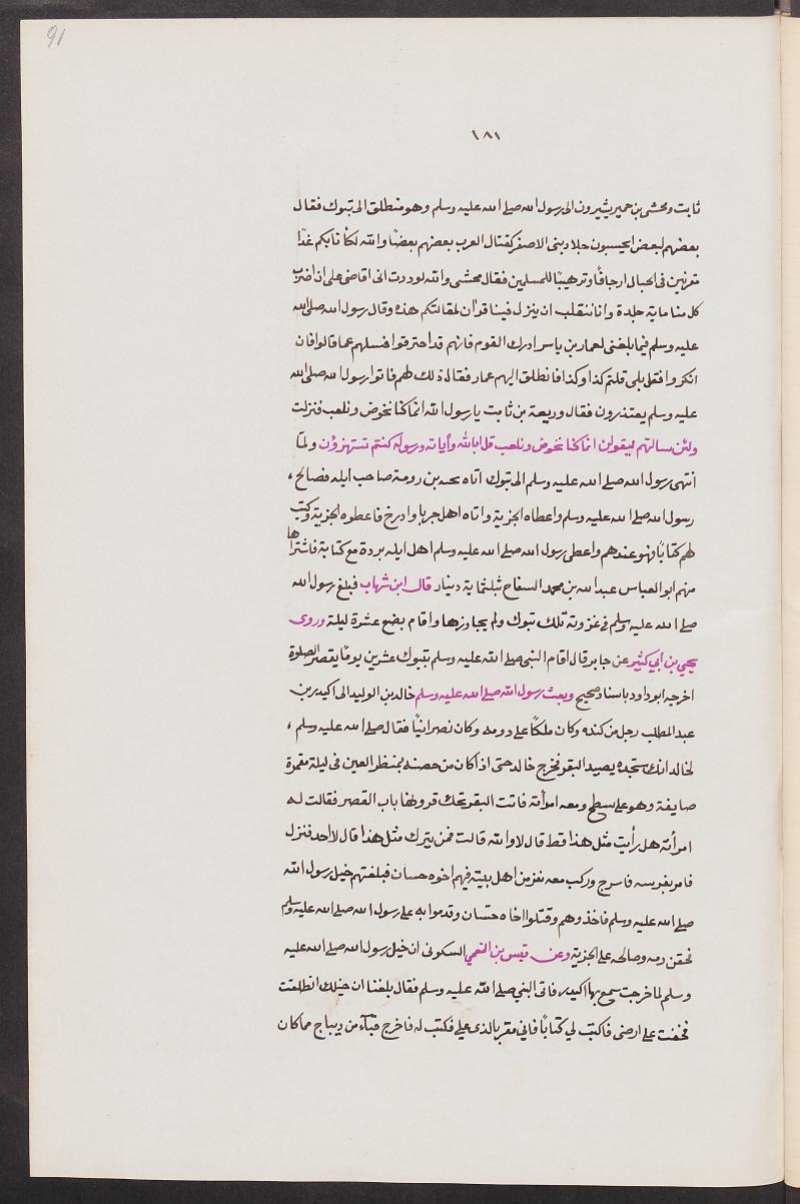 91
١٨١
ثابت ومخشى بن حمير يشيرون الى رسول الله صلى الله عليه وسلم وهو منطلق الى تبوك فقال
بعضهم لبعض اتحسبون جلاد بنى الاصفر كقتال العرب بعضهم بعضًا والله لكأنا بكم غدًا
مقرنين فى الحبال ارجافًا وترهيبًا للمسلمين فقال مخشى والله لوددت انى اقاضى على ان اضرب
كل منا ماية جلدة وانا ننقلب ان ينزل فينا قرأن لمقالتكم هذه وقال رسول الله صلى الله
عليه وسلم فيما بلغنى لعمار بن ياسر ادرك القوم فانهم قد احترقوا فسلهم عما قالوا فان
انكروا فقل بلى قلتم كذا وكذا فانطلق اليهم عمار فقال ذلك لهم فاتوا رسول الله صلى الله
عليه وسلم يعتذرون فقال وريعة بن ثابت يا رسول الله انما كنا نخوض ونلعب فنزلت
ولئن سالتهم ليقولن انما كنا نخوض ونلعب قل ابالله وأياته ورسوله كنتم تستهزؤن ولمّا
انتهى رسول الله صلى الله عليه وسلم الى تبوك اتاه يحنه بن رومة صاحب ايله فصالح،
رسول الله صلى الله عليه وسلم واعطاه الجزية واتاه اهل جربا واذرخ فاعطوه الجزية وكتب
لهم كتابًا فهو عندهم واعطى رسول الله صلى الله عليه وسلم اهل ايله بردة مع كتابة فاشتراها
منهم ابو العباس عبد الله بن محمد السفاح بثلثماية دينار قال ابن شهاب فبلغ رسول الله
صلى الله عليه وسلم فى غزوته تلك تبوك ولم يجاوزها واقام بضع عشرة ليلة وروى
يحيى بن أبي كثير عن جابر قال اقام النبى صلى الله عليه وسلم بتبوك عشرين يومًا يقصر الصلوة
اخرجه ابو داود باسناد صحيح وبعث رسول الله صلى الله عليه وسلم خالد بن الوليد الى اكيدر بن
عبد المطلب رجل من كنده وكان ملكًا على دومه وكان نصرانيًا فقال صلى الله عليه وسلم،
لخالد انك ستجده يصيد البقر فخرج خالد حتى اذا كان من حصنه بمنظر العين فى ليلة مقمرة
صايفة وهو على سطح ومعه امرأته فاتت البقر تحك قرونها باب القصر فقالت له
امرأته هل رأيت مثل هذا قط قال لا والله قالت فمن يترك مثل هذا قال لا احد فنزل
فامر بفرسه فاسرج وركب معه نفر من اهل بيته فيهم اخوه حسان فبلغتهم خيل رسول الله
صلى الله عليه وسلم فاخذوهم وقتلوا اخاه حسّان وقدموا به على رسول الله صلى الله عليه وسلم
فحقن دمه وصالحه على الجزية وعن قيس بن النعمي السكونى ان خيل رسول الله صلى الله عليه
وسلم لما خرجت سمع بها اكيدر فاتى النبي صلى الله عليه وسلم فقال بلغنا ان خيلك انطلقت
فخفت على ارضى فاكتب لي كتابًا فاني مقر بالذى علي فكتب له فاخرج قبآء من ديباج مما كان